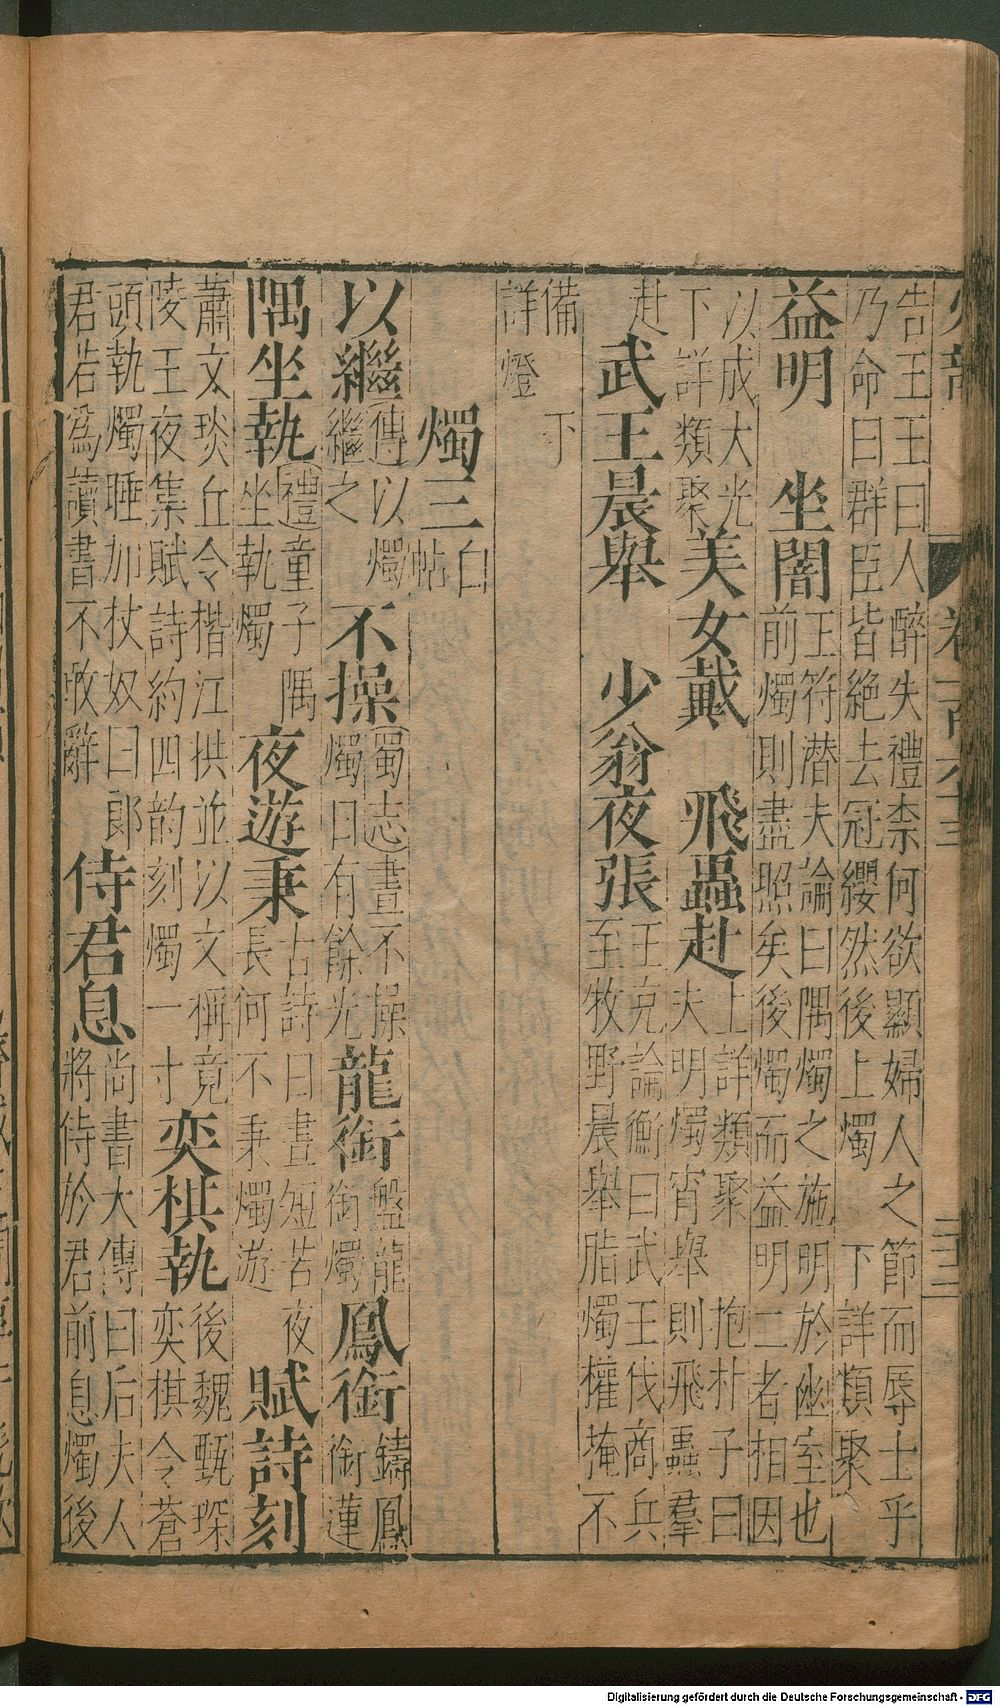 告王王曰人醉失禮柰何欲顯婦人之節而辱士乎
乃命曰群臣皆絶去冠纓然後上燭 下詳類聚
益明 坐闇 王符潛夫論曰隅燭之施明於幽室也
前燭則盡照矣後燭而益明二者相因
以成大光
下詳類聚 美女戴 飛蟲赴 上詳類聚 抱朴子曰
夫明燭宵舉則飛蟲羣
赴 武王晨舉 少翁夜張 王充論衡曰武王伐商兵
至牧野晨舉脂燭權掩不
備 下
詳燈
燭三 白
帖
以繼 傳以燭
繼之 不操 蜀志晝不操
燭日有餘光 龍銜 盤龍
銜燭 鳳銜 鑄鳳
銜蓮
隅坐執 禮童子隅
坐執燭 夜遊秉 古詩曰晝短苦夜
長何不秉燭游 賦詩刻
蕭文琰丘令楷江拱並以文稱竟
陵王夜集賦詩約四韵刻燭一寸 奕棋執 後魏甄琛
奕棋令蒼
頭執燭睡加杖奴曰郎
君若爲讀書不敢辭 侍君息 尚書大傳曰后夫人
將侍於君前息燭後
火部
卷一百六十三
二十二
Digitalisierung gefördert durch die Deutsche Forschungsgemeinschaft - DFG